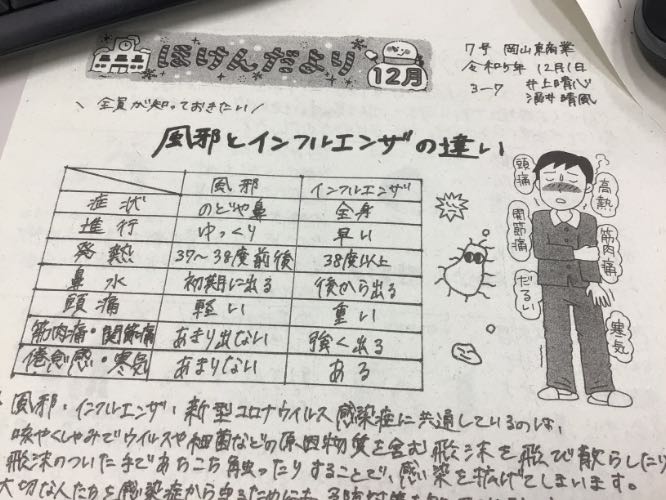 ほけんだより
12月
7号 岡山東商業
令和5年 12月1日
3-7 井上晴心
涌井晴風
\ 全員が知っておきたい /
風邪とインフルエンザの違い
風邪 インフルエンザ
症状 のどや鼻 全身
進行 ゆっくり 早い
発熱 37〜38度前後 38度以上
鼻水 初期に出る 後から出る
頭痛 軽い 重い
筋肉痛・関節痛 あまり出ない 強く出る
倦怠感・寒気 あまりない ある
頭痛
高熱
関節痛
筋肉痛
だるい
寒気
風邪・インフルエンザ・新型コロナウイルス感染症に共通しているのは、
咳やくしゃみでウイルスや細菌などの原因物質を含む飛沫を飛び散らしたり
飛沫のついた手であちこち触ったりすることで、感染を拡げてしまいます。
大切な人たちを感染症から守るためにも